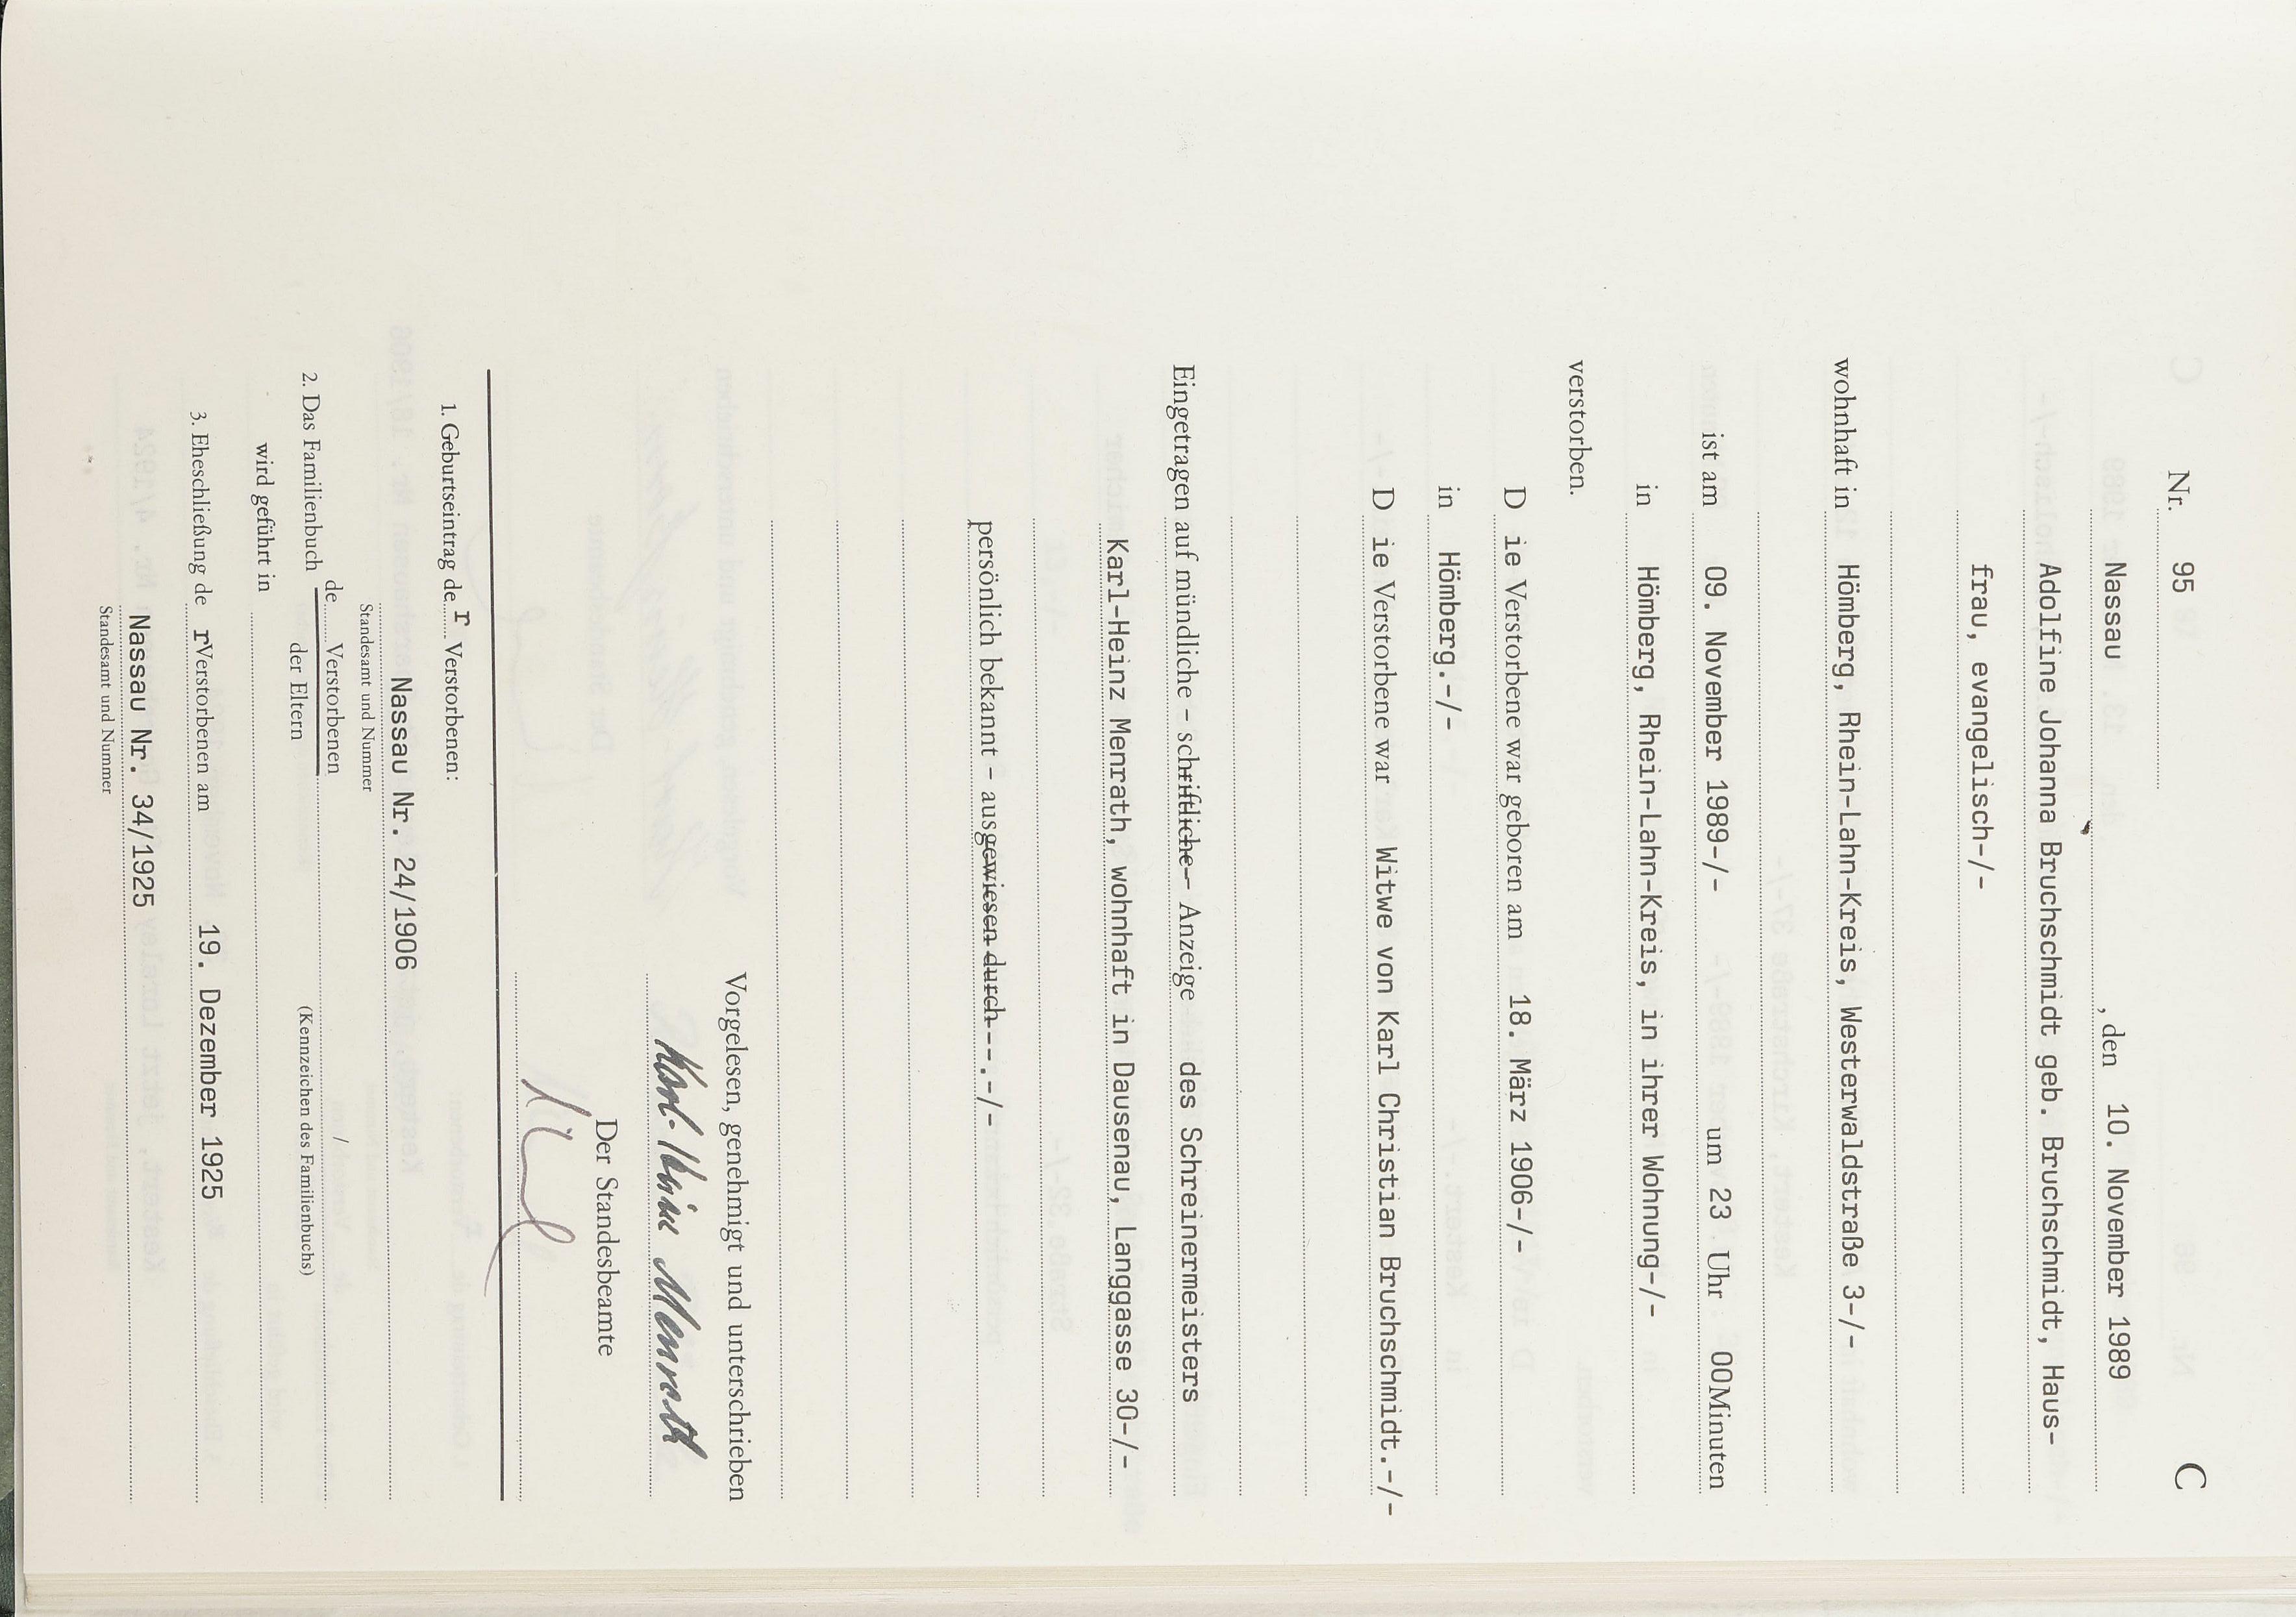 C
Nr. 95
Nassau , den 10. November 1989
Adolfine Johanna Bruchschmidt geb. Bruchschmidt, Haus-
frau, evangelisch-/-
wohnhaft in Hömberg, Rhein-Lahn-Kreis, Westerwaldstraße 3-/-
ist am 09. November 1989-/- um 23 Uhr 00Minuten
in Hömberg, Rhein-Lahn-Kreis, in ihrer Wohnung-/-
verstorben.
D ie Verstorbene war geboren am 18. März 1906-/-
in Hömberg.-/-
D ie Verstorbene war Witwe von Karl Christian Bruchschmidt.-/-
Eingetragen auf mündliche - schriftliche - Anzeige des Schreinermeisters
Karl-Heinz Menrath, wohnhaft in Dausenau, Langgasse 30-/-
persönlich bekannt - ausgewiesen durch--.-/-
Vorgelesen, genehmigt und unterschrieben
Karl-Heinz Menrath
Der Standesbeamte
1. Geburtseintrag de r Verstorbenen:
Nassau Nr. 24/1906
Standesamt und Nummer
2. Das Familienbuch de Verstorbenen /
der Eltern (Kennzeichen des Familienbuchs)
wird geführt in
3. Eheschließung de rVerstorbenen am 19. Dezember 1925
Nassau Nr. 34/1925
Standesamt und Nummer